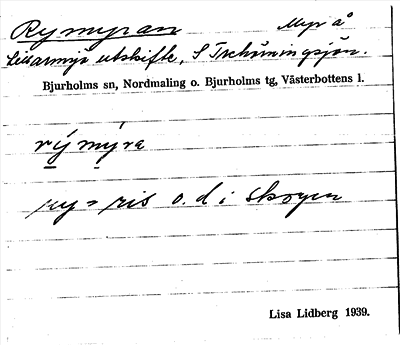 Rymyran Myr å
utskifte, S
Bjurholms sn, Nordmaling o. Bjurholms tg, Västerbottens l.
rýmýra
ry = ris o. d i skogen
Lisa Lidberg 1939.